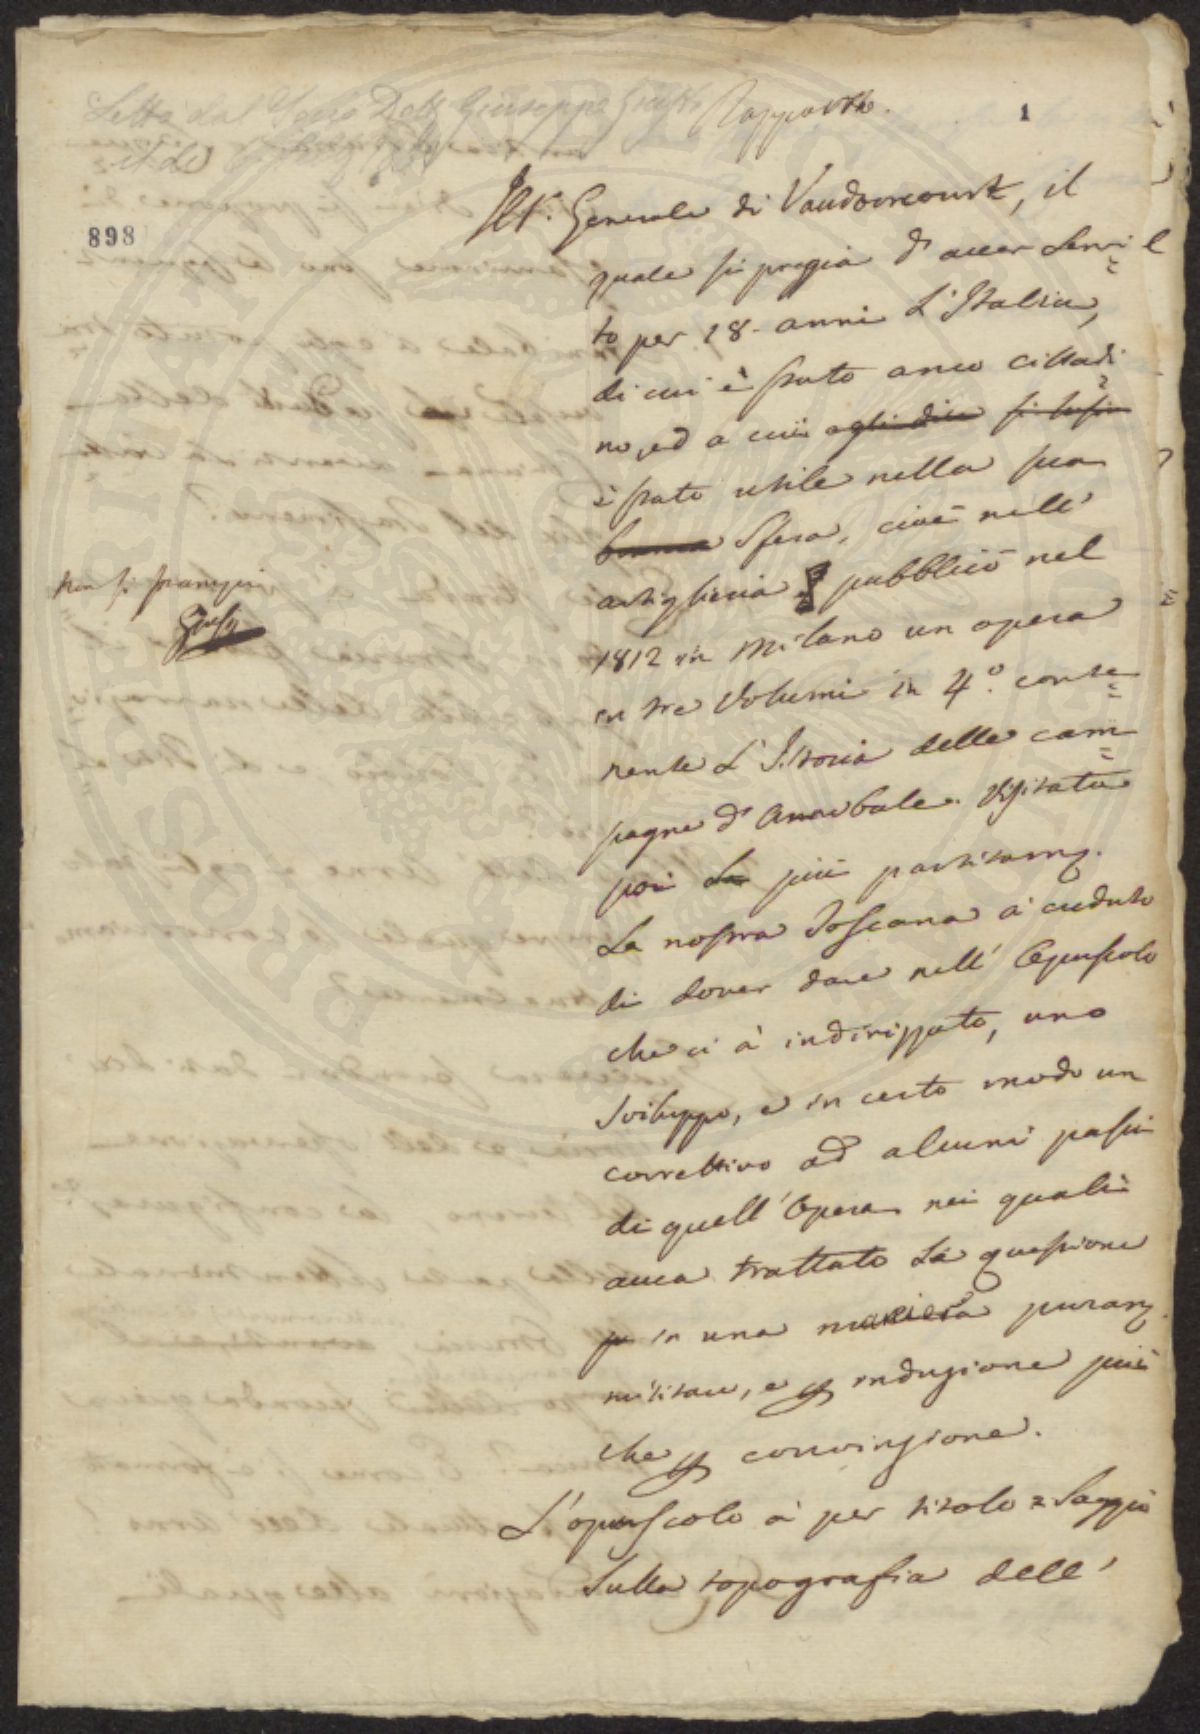 Letto dal Socio Dott. Giuseppe Giusti Rapporto.
1
Il Sr. Generale di Vaudoncourt, il
898
quale si pregia d'aver servi=
to per 18. anni l'Italia,
di cui è stato anco cittadi=
no, ed a cui
è stato utile nella sua
sfera, cioè nell'
artiglieria pubblicò nel
Non si stampi
1812 in Milano un opera
in tre Volumi in 4.° conte=
nente l'Istoria delle cam=
pagne d'Annibale. Visitata
poi più particolarm.
la nostra Toscana à creduto
di dover dare nell'Opuscolo
che ci à indirizzato, uno
sviluppo, e in certo modo un
correttivo ad alcuni passi
di quell'Opera nei quali
avea trattato la questione
in una maniera puram.
militare, e p induzione più
che p convinzione.
L'opuscolo à per titolo = Saggio
sulla topografia dell'